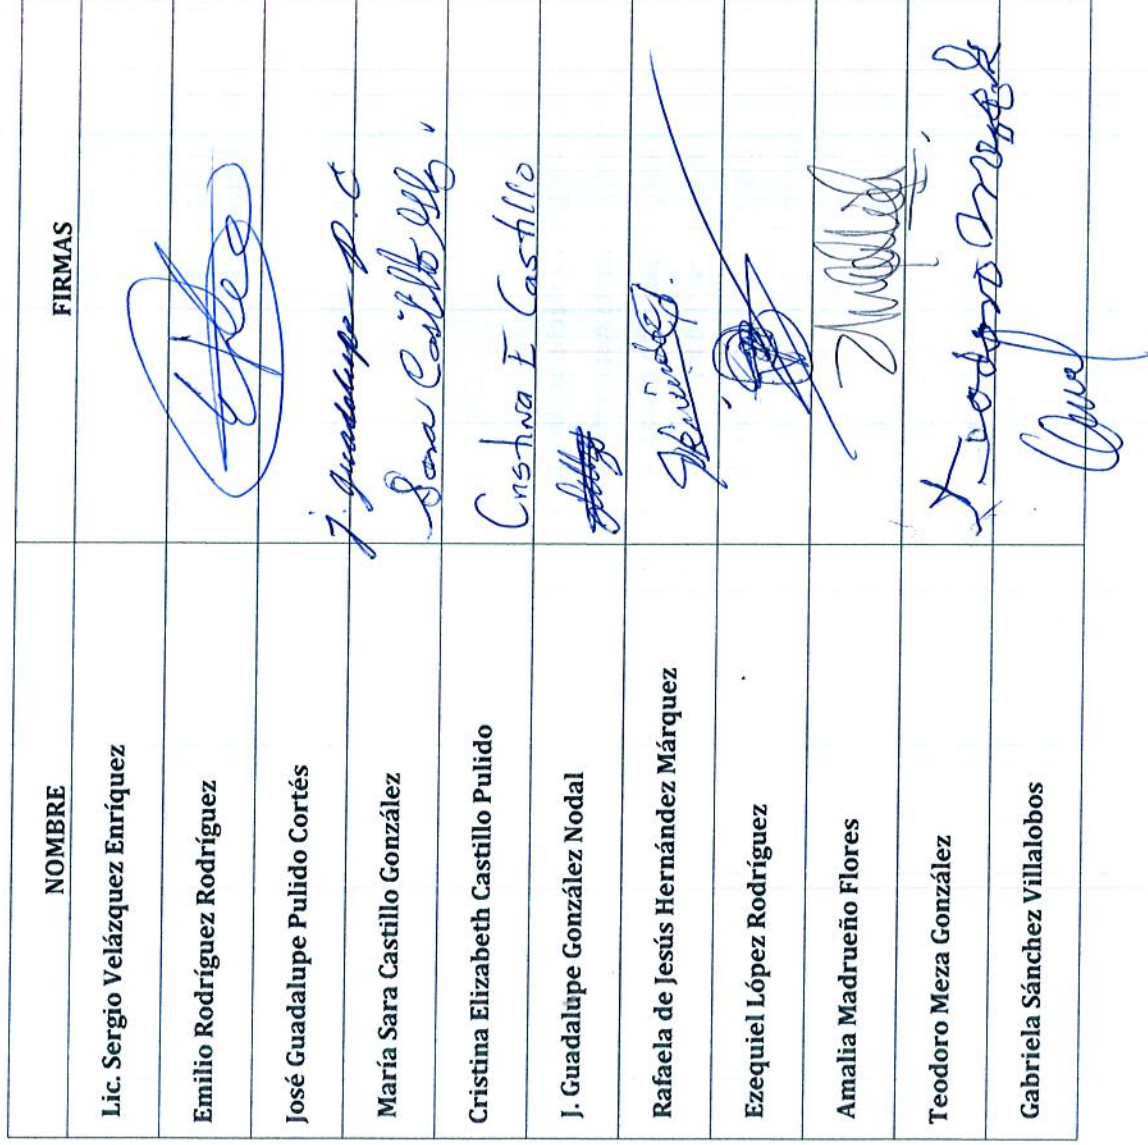 NOMBRE FIRMAS
Lic. Sergio Velázquez Enríquez
Emilio Rodríguez Rodríguez
José Guadalupe Pulido Cortés J. Guadalupe P. C
María Sara Castillo González Sara Castillo Glz.
Cristina Elizabeth Castillo Pulido Cristina E Castillo
J. Guadalupe González Nodal
Rafaela de Jesús Hernández Márquez
Ezequiel López Rodríguez
Amalia Madrueño Flores
Teodoro Meza González Teodoro Meza
Gabriela Sánchez Villalobos